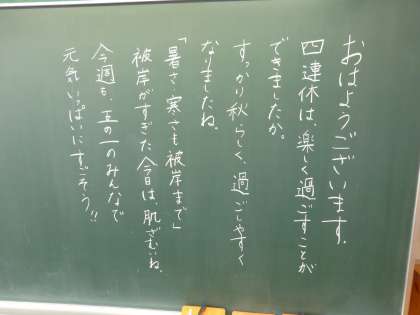 おはようございます。
四連休は、楽しく過ごすことが
できましたか。
すっかり秋らしく、過ごしやすく
なりましたね。
「暑さ寒さも被岸まで」
被岸がすぎた今日は、肌ざむいね。
今週も、五の一のみんなで
元気いっぱいにすごそう!!